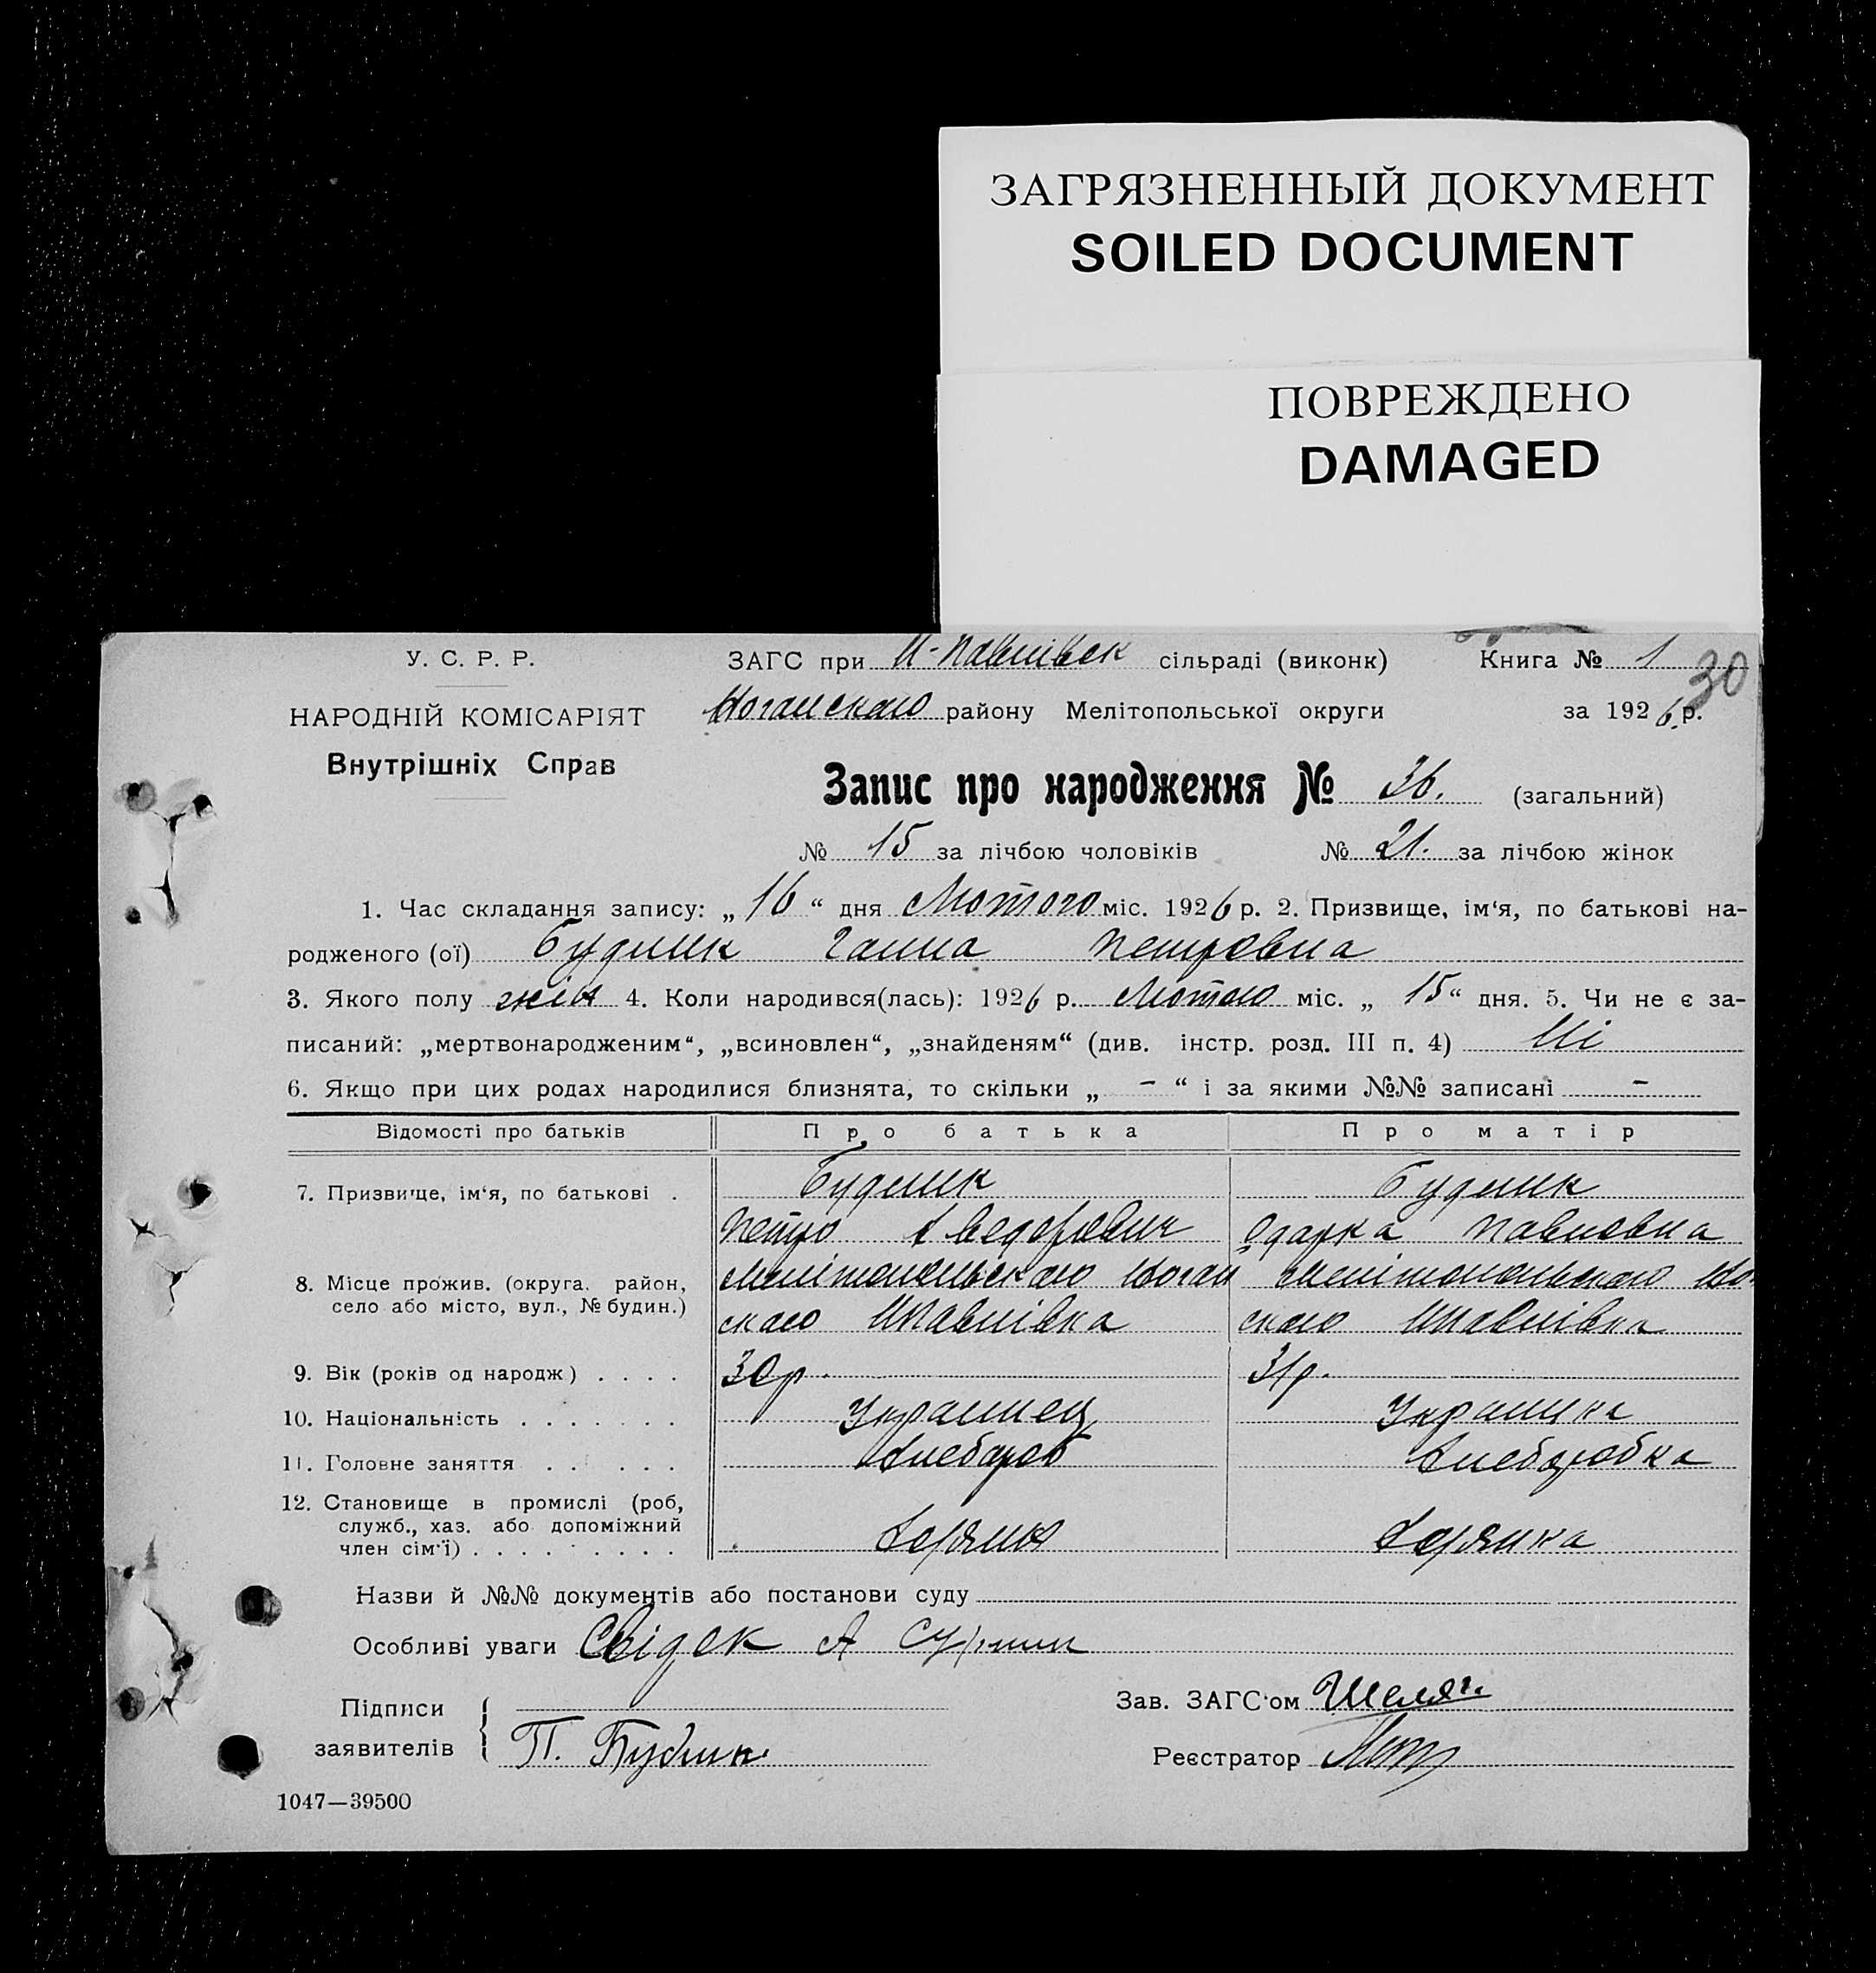 ЗАГРЯЗНЕННЫЙ ДОКУМЕНТ
SOILED DOCUMENT
ПОВРЕЖДЕНО
DAMAGED
У. С. Р. Р.
НАРОДНІЙ КОМІСАРІЯТ
Внутрішніх Справ
ЗАГС при сільраді (виконк) Книга № 1
30
району Мелітопольської округи за 1926 р.
Запис про народження № 36. (загальний)
№ 15 за лічбою чоловіків № 21. за лічбою жінок
1. Час складання запису: „16“ дня Лютого міс. 1926 р. 2. Призвище, ім‘я, по батькові на-
родженого (ої) Будник Ганна Петровна
3. Якого полу жін 4. Коли народився(лась): 1926 р. Лютого міс. „15“ дня. 5. Чи не є за-
писаний: „мертвонародженим“, „всиновлен“, „знайденям“ (див. інстр. розд. III п. 4) Ні
6. Якщо при цих родах народилися близнята, то скільки „ - “ і за якими №№ записані -
Відомості про батьків Про батька Про матір
7. Призвище, ім‘я, по батькові . Будник Будник
Петро Одарка Павловна
8. Місце прожив. (округа. район,
село або місто, вул., № будин.)
9. Вік (років од народж) . . . . 30р. 31р.
10. Національність . . . . . . . Украинец Украинка
11. Головне заняття . . . . . Хлебароб Хлебаробка
12. Становище в промислі (роб,
служб., хаз. або допоміжний
член сім‘ї) . . . . . . . . .
Назви й №№ документів або постанови суду
Особливі уваги Свідок А
Підписи
заявителів
П. Будник
Зав. ЗАГС‘ом
Реєстратор
1047—39500